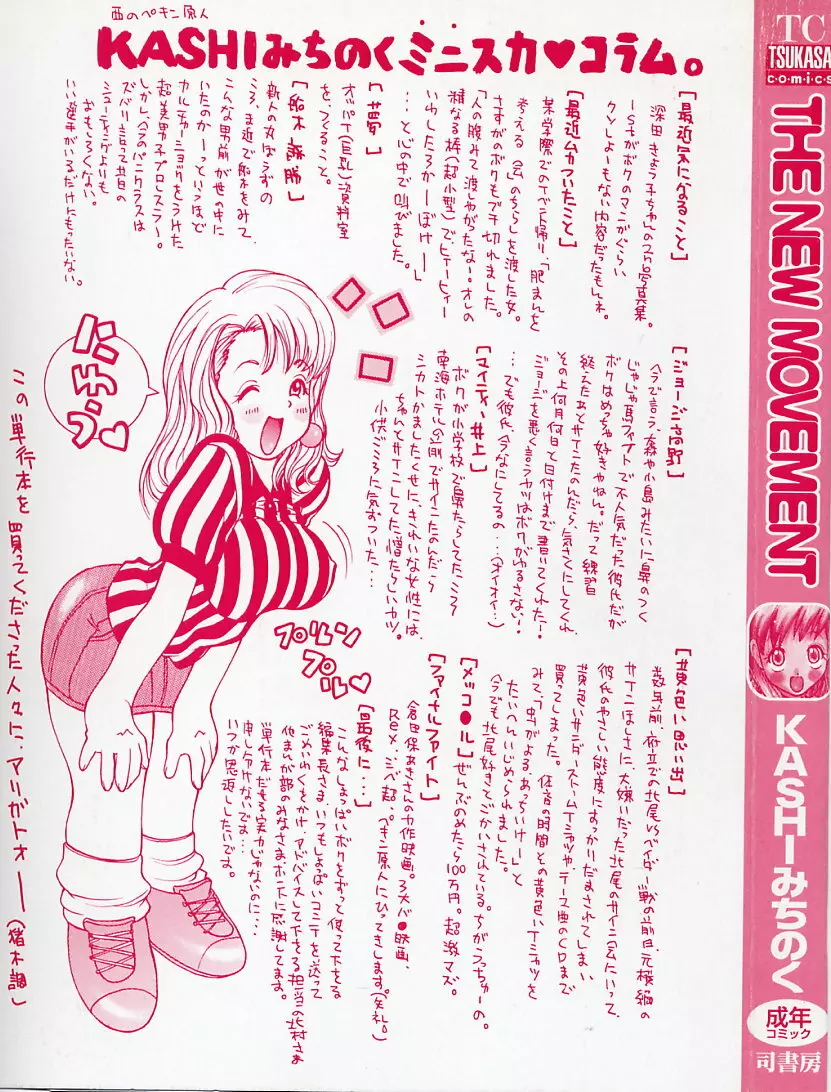 西のペキン原人
KASHIみちのくミニスカ♥コラム。
[最近気になること]
深田きょう子ちゃんの2nd写真集。
1stがボクのマンガぐらい
クソしょーもない内容だったもんネ。
[最近ムカついたこと]
某学際でのイベント帰り、「肥まんを
考える会」のちらしを渡した女。
さすがのボクもブチ切れました。
「人の腹みて渡しやがったなー!オレの
粗なる棒(超小型)で、ヒーヒー
いわしたろかーぼけー」
…と心の中で叫びました。
[野望]
オッパイ(巨乳)資料室
を、つくること。
[船木誠勝]
新人の丸ぼうずの
ころ、ま近で船木をみて、
こんな男前が世の中に
いたのかーっというほど
カルチャーショックをうけた
超美男子プロレスラー。
しかし、今のパンクラスは
ズバリ言って昔の
シューティングよりも
おもしろくない。
いい選手がいるだけにもったいない。
[ジョージ高野]
今で言う、森や小島みたいに鼻のつく
じゃじゃ馬ファイトで不人気だった彼氏だが
ボクはめっちゃ好きやねん。だって練習
終えたあとサインたのんだら、気さくにしてくれ
その上何月何日と日付けまで書いてくれたー!
ジョージを悪く言うヤツはボクがゆるさない!
…でも彼氏、今なにしてるの…(タイオイ…)
[マイティ・井上]
ボクが小学校で鼻たらしてたころ
南海ホテル(会)剛でサインたのんだら
シカトかましたくせに、きれいな女性には、
ちゃんとサインしてた憎たらしいヤツ。
小供ごころに気ずついた…
[黄色い思い出]
数年前、府立での北尾VSベイダー戦の前日、元横綱の
サインほしさに、大嫌いだった北尾のサイン会にいって、
彼氏のやさしい態度にすっかりだまされてしまい
黄色いサンダーストームTシャツやテーマ曲のCDまで
買ってしまった。体育の時間との黄色いTシャツを
みて、「虫がよる、あっちいけー!」と
たいへんいじめられました。
今でも北尾好きとごかいされている。ちがうっちゅーの。
[メッコ●ール]
ぜんぶのめたら100万円。超激マズ。
[ファイナルファイト]
倉田保あきさんの力作映画。3大バ●映画、
Rex、シベ超、ペキン原人にひってきします。(失礼。)
[最後に…]
こんなしょっぱいボクをずっと使って下さる
編集長さま、いつもしょっぱいコミテを送って
ごめいわくをかけ、アドバイスして下さる担当の北村さま
他まんが部のみなさま、ホントに感謝してます。
単行本だせる実力じゃないのに…
申し分けないです…
いつか恩返ししたいです。
ニキッ♡
プルン
プル♡
この単行本を買ってくださった人々に、アリガトォーー(猪木調)
TC
TSUKASA
comics
THE NEW MOVEMENT
KASHIみちのく
成年
コミック
司書房